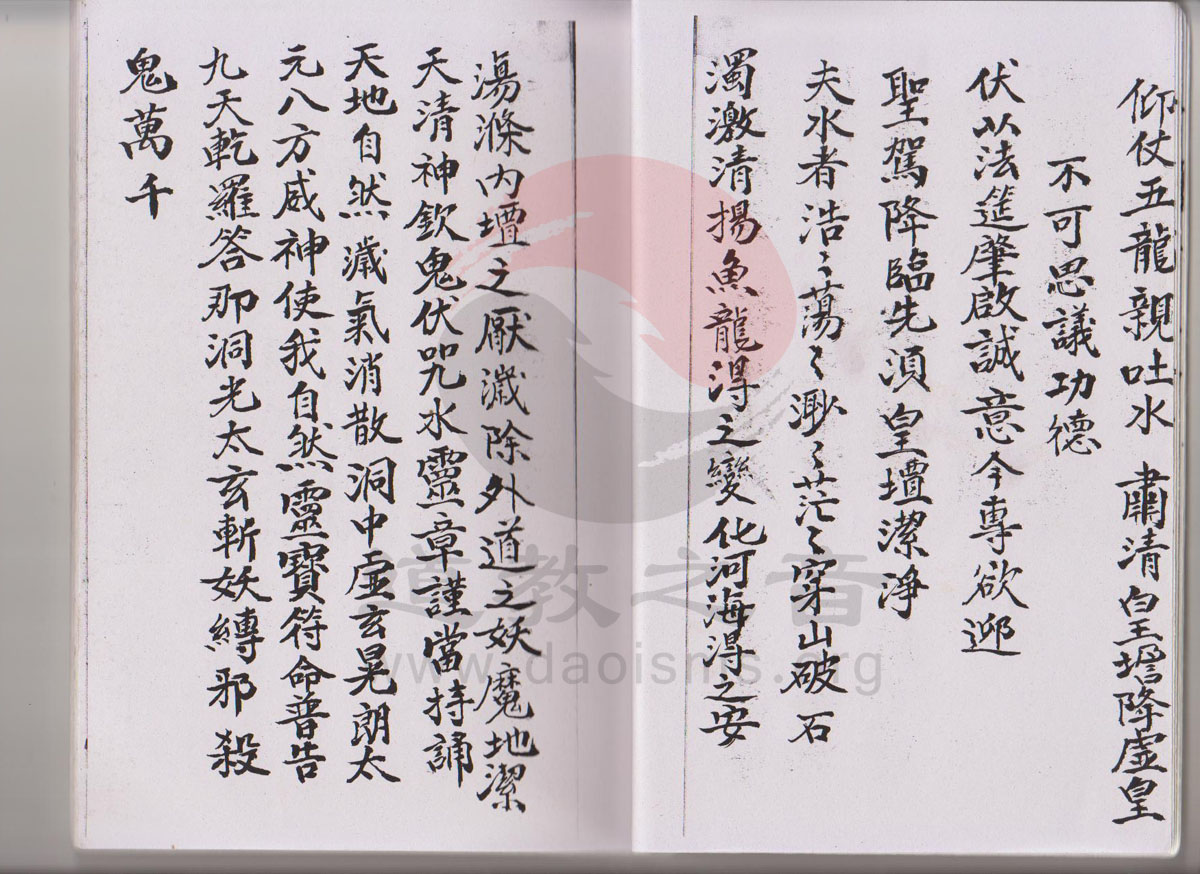 仰仗五龍親吐水 肅清皇壇降虛皇
不可思議功德
伏以法筵肇啟誠意今專欲迎
聖駕降臨先須皇壇潔淨
夫水者浩〻蕩〻渺〻茫〻穿山破石
濁激清揚魚龍得之變化河海得之安
蕩滌內壇之厭濊除外道之妖魔地潔
天清神欽鬼伏咒水靈章謹當持誦
天地自然濊氣消散洞中虛玄晃朗太
元八方威神使我自然靈寶符命普告
九天乾羅答那洞光太玄斬妖縛邪殺
鬼萬千
道教之音
www.daoisms.org